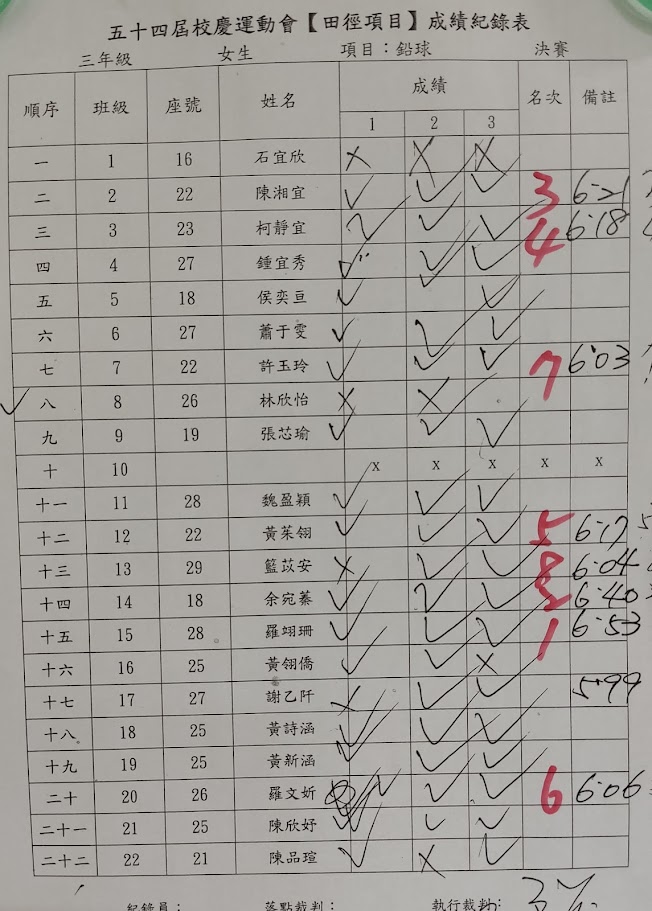 五十四屆校慶運動會【田徑項目】成績紀錄表
三年級 女生 項目：鉛球 決賽
順序 班級 座號 姓名 成績 名次 備註
1 2 3
一 1 16 石宜欣 X X X
二 2 22 陳湘宜 ✓ ✓ ✓ 3 6.21
三 3 23 柯靜宜 ✓ ✓ ✓ 4 6.18
四 4 27 鍾宜秀 ✓ ✓ ✓
五 5 18 侯奕亘 ✓ ✓
六 6 27 蕭于雯 ✓ ✓ ✓
七 7 22 許玉玲 ✓ ✓ ✓ 7 6.03
✓ 八 8 26 林欣怡 X X
九 9 19 張芯瑜 ✓ ✓ ✓
十 10 x x x x x
十一 11 28 魏盈穎 ✓ ✓ ✓
十二 12 22 黃茱翎 ✓ ✓ ✓ 5 6.17
十三 13 29 籃苡安 X ✓ ✓ 8 6.04
十四 14 18 余宛蓁 ✓ ✓ ✓ 2 6.40
十五 15 28 羅翊珊 ✓ ✓ ✓ 1 6.53
十六 16 25 黃翎僑 ✓ ✓ X
十七 17 27 謝乙阡 X ✓ ✓ 5.99
十八 18 25 黃詩涵 ✓ ✓ ✓
十九 19 25 黃新涵 ✓ ✓ ✓
二十 20 26 羅文妡 ✓ ✓ ✓ 6 6.06
二十一 21 25 陳欣妤 ✓ ✓ ✓
二十二 22 21 陳品瑄 ✓ X ✓
紀錄員： 落點裁判： 執行裁判: